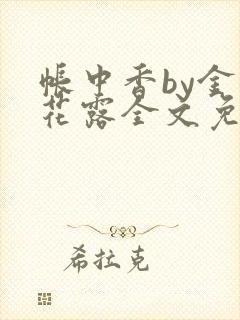 帐中香by金
花露全文免
希拉克